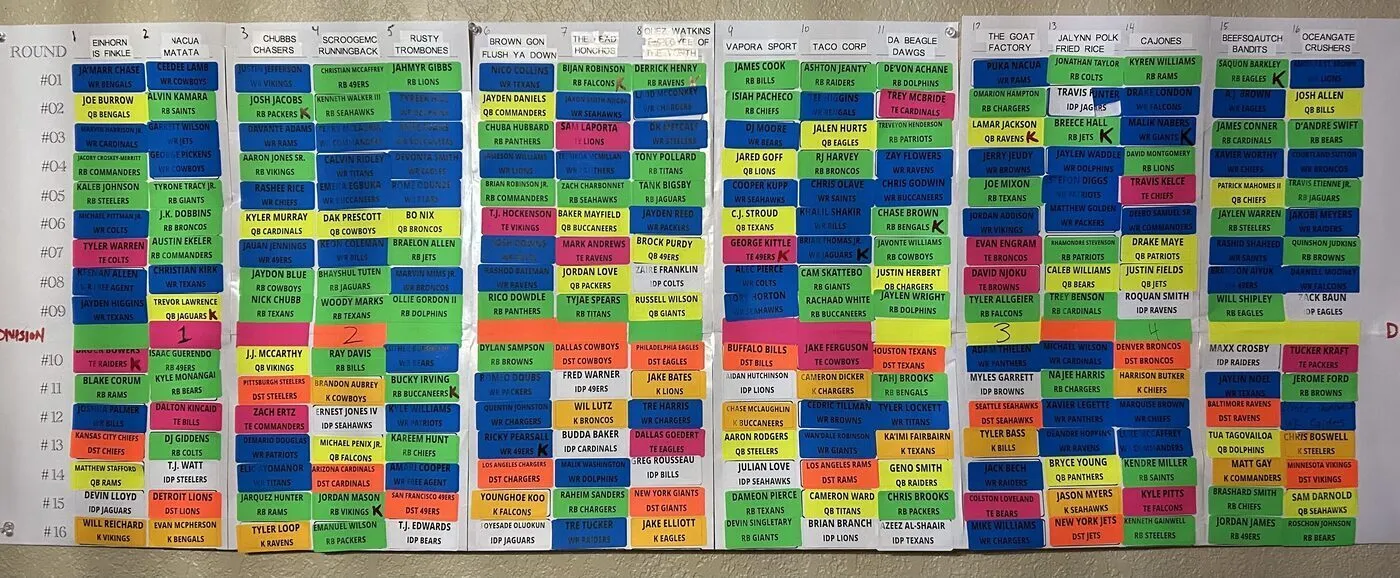 1 2 3 4 5 6 7 8 9 10 11 12 13 14 15 16
ROUND
EINHORN IS FINKLE
NACUA MATATA
CHUBBS CHASERS
SCROOGEMC RUNNINGBACK
RUSTY TROMBONES
BROWN GON FLUSH YA DOWN
HONCHOS
VAPORA SPORT
TACO CORP
DA BEAGLE DAWGS
THE GOAT FACTORY
JALYNN POLK FRIED RICE
CAJONES
BEEFSQAUTCH BANDITS
OCEANGATE CRUSHERS
#01
JA'MARR CHASE CEEDEE LAMB JUSTIN JEFFERSON CHRISTIAN MCCAFFREY JAHMYR GIBBS NICO COLLINS BIJAN ROBINSON DERRICK HENRY JAMES COOK ASHTON JEANTY DEVON ACHANE PUKA NACUA JONATHAN TAYLOR KYREN WILLIAMS SAQUON BARKLEY
WR BENGALS WR COWBOYS WR VIKINGS RB 49ERS RB LIONS WR TEXANS RB FALCONS K RB RAVENS K RB BILLS RB RAIDERS RB DOLPHINS WR RAMS RB COLTS RB RAMS RB EAGLES K WR LIONS
#02
JOE BURROW ALVIN KAMARA JOSH JACOBS KENNETH WALKER III JAYDEN DANIELS ISIAH PACHECO TEE HIGGINS TREY MCBRIDE OMARION HAMPTON TRAVIS HUNTER DRAKE LONDON A.J. BROWN JOSH ALLEN
QB BENGALS RB SAINTS RB PACKERS K RB SEAHAWKS QB COMMANDERS RB CHIEFS WR BENGALS TE CARDINALS RB CHARGERS IDP JAGUARS WR FALCONS WR EAGLES QB BILLS
#03
MARVIN HARRISON JR. GARRETT WILSON DAVANTE ADAMS CHUBA HUBBARD SAM LAPORTA DK METCALF DJ MOORE JALEN HURTS TREVEYON HENDERSON LAMAR JACKSON BREECE HALL MALIK NABERS JAMES CONNER D'ANDRE SWIFT
WR CARDINALS WR JETS WR RAMS RB PANTHERS TE LIONS WR STEELERS WR BEARS QB EAGLES RB PATRIOTS QB RAVENS K RB JETS K WR GIANTS K RB CARDINALS RB BEARS
#04
JACORY CROSKEY-MERRITT GEORGE PICKENS AARON JONES SR. CALVIN RIDLEY DEVONTA SMITH JAMESON WILLIAMS TONY POLLARD JARED GOFF RJ HARVEY ZAY FLOWERS JERRY JEUDY JAYLEN WADDLE DAVID MONTGOMERY XAVIER WORTHY COURTLAND SUTTON
RB COMMANDERS WR COWBOYS RB VIKINGS WR TITANS WR EAGLES WR LIONS WR PANTHERS RB TITANS QB LIONS RB BRONCOS WR RAVENS WR BROWNS WR DOLPHINS RB LIONS WR CHIEFS WR BRONCOS
#05
KALEB JOHNSON TYRONE TRACY JR. RASHEE RICE EMEKA EGBUKA ROME ODUNZE BRIAN ROBINSON JR. ZACH CHARBONNET TANK BIGSBY COOPER KUPP CHRIS OLAVE CHRIS GODWIN JOE MIXON STEFON DIGGS TRAVIS KELCE PATRICK MAHOMES II TRAVIS ETIENNE JR.
RB STEELERS RB GIANTS WR CHIEFS WR BUCCANEERS WR BEARS RB COMMANDERS RB SEAHAWKS RB JAGUARS WR SEAHAWKS WR SAINTS WR BUCCANEERS RB TEXANS WR PATRIOTS TE CHIEFS QB CHIEFS RB JAGUARS
#06
MICHAEL PITTMAN JR. J.K. DOBBINS KYLER MURRAY DAK PRESCOTT BO NIX T.J. HOCKENSON BAKER MAYFIELD JAYDEN REED C.J. STROUD KHALIL SHAKIR CHASE BROWN JORDAN ADDISON MATTHEW GOLDEN DEEBO SAMUEL SR. JAYLEN WARREN JAKOBI MEYERS
WR COLTS RB BRONCOS QB CARDINALS QB COWBOYS QB BRONCOS TE VIKINGS QB BUCCANEERS WR PACKERS QB TEXANS WR BILLS RB BENGALS K WR VIKINGS WR PACKERS WR COMMANDERS RB STEELERS WR RAIDERS
#07
TYLER WARREN AUSTIN EKELER JAUAN JENNINGS KEON COLEMAN BRAELON ALLEN JOSH DOWNS MARK ANDREWS BROCK PURDY GEORGE KITTLE BRIAN THOMAS JR. JAVONTE WILLIAMS EVAN ENGRAM RHAMONDRE STEVENSON DRAKE MAYE RASHID SHAHEED QUINSHON JUDKINS
TE COLTS RB COMMANDERS WR 49ERS WR BILLS RB JETS TE RAVENS QB 49ERS TE 49ERS K WR JAGUARS K RB COWBOYS TE BRONCOS RB PATRIOTS QB PATRIOTS WR SAINTS RB BROWNS
#08
KEENAN ALLEN CHRISTIAN KIRK JAYDON BLUE BHAYSHUL TUTEN MARVIN MIMS JR. RASHOD BATEMAN JORDAN LOVE ZAIRE FRANKLIN ALEC PIERCE CAM SKATTEBO JUSTIN HERBERT DAVID NJOKU CALEB WILLIAMS JUSTIN FIELDS BRANDON AIYUK DARNELL MOONEY
WR FREE AGENT WR TEXANS RB COWBOYS RB JAGUARS WR BRONCOS WR RAVENS QB PACKERS IDP COLTS WR COLTS RB GIANTS QB CHARGERS TE BROWNS QB BEARS QB JETS WR 49ERS WR FALCONS
#09
JAYDEN HIGGINS TREVOR LAWRENCE NICK CHUBB WOODY MARKS OLLIE GORDON II RICO DOWDLE TYJAE SPEARS RUSSELL WILSON TORY HORTON RACHAAD WHITE JAYLEN WRIGHT TYLER ALLGEIER TREY BENSON ROQUAN SMITH WILL SHIPLEY ZACK BAUN
WR TEXANS QB JAGUARS K RB TEXANS RB TEXANS RB DOLPHINS RB PANTHERS RB TITANS QB GIANTS WR SEAHAWKS RB BUCCANEERS RB DOLPHINS RB FALCONS RB CARDINALS IDP RAVENS RB EAGLES IDP EAGLES
DIVISION 1 2 3 4 D
#10
BROCK BOWERS ISAAC GUERENDO J.J. MCCARTHY RAY DAVIS LUTHER BURDEN DYLAN SAMPSON DALLAS COWBOYS PHILADELPHIA EAGLES BUFFALO BILLS JAKE FERGUSON HOUSTON TEXANS ADAM THIELEN MICHAEL WILSON DENVER BRONCOS MAXX CROSBY TUCKER KRAFT
TE RAIDERS K RB 49ERS QB VIKINGS RB BILLS WR BEARS RB BROWNS DST COWBOYS DST EAGLES DST BILLS TE COWBOYS DST TEXANS WR PANTHERS WR CARDINALS DST BRONCOS IDP RAIDERS TE PACKERS
#11
BLAKE CORUM KYLE MONANGAI PITTSBURGH STEELERS BRANDON AUBREY BUCKY IRVING ROMEO DOUBS FRED WARNER JAKE BATES AIDAN HUTCHINSON CAMERON DICKER TAHJ BROOKS MYLES GARRETT NAJEE HARRIS HARRISON BUTKER JAYLIN NOEL JEROME FORD
RB RAMS RB BEARS DST STEELERS K COWBOYS RB BUCCANEERS K WR PACKERS IDP 49ERS K LIONS IDP LIONS K CHARGERS RB BENGALS IDP BROWNS RB CHARGERS K CHIEFS WR TEXANS RB BROWNS
#12
JOSHUA PALMER DALTON KINCAID ZACH ERTZ ERNEST JONES IV KYLE WILLIAMS QUENTIN JOHNSTON WIL LUTZ TRE HARRIS CHASE MCLAUGHLIN CEDRIC TILLMAN TYLER LOCKETT SEATTLE SEAHAWKS XAVIER LEGETTE MARQUISE BROWN BALTIMORE RAVENS
WR BILLS TE BILLS TE COMMANDERS IDP SEAHAWKS WR PATRIOTS WR CHARGERS K BRONCOS WR CHARGERS K BUCCANEERS WR BROWNS WR TITANS DST SEAHAWKS WR PANTHERS WR CHIEFS DST RAVENS
#13
KANSAS CITY CHIEFS DJ GIDDENS DEMARIO DOUGLAS MICHAEL PENIX JR. KAREEM HUNT RICKY PEARSALL BUDDA BAKER DALLAS GOEDERT AARON RODGERS WAN'DALE ROBINSON KA'IMI FAIRBAIRN TYLER BASS DEANDRE HOPKINS LUKE MCCAFFREY TUA TAGOVAILOA CHRIS BOSWELL
DST CHIEFS RB COLTS WR PATRIOTS QB FALCONS RB CHIEFS WR 49ERS K IDP CARDINALS TE EAGLES QB STEELERS WR GIANTS K TEXANS K BILLS WR RAVENS WR COMMANDERS QB DOLPHINS K STEELERS
#14
MATTHEW STAFFORD T.J. WATT ELIC AYOMANOR ARIZONA CARDINALS AMARI COOPER LOS ANGELES CHARGERS MALIK WASHINGTON GREG ROUSSEAU JULIAN LOVE LOS ANGELES RAMS GENO SMITH JACK BECH BRYCE YOUNG KENDRE MILLER MATT GAY MINNESOTA VIKINGS
QB RAMS IDP STEELERS WR TITANS DST CARDINALS WR FREE AGENT DST CHARGERS WR DOLPHINS IDP BILLS IDP SEAHAWKS DST RAMS QB RAIDERS WR RAIDERS QB PANTHERS RB SAINTS K COMMANDERS DST VIKINGS
#15
DEVIN LLOYD DETROIT LIONS JARQUEZ HUNTER JORDAN MASON SAN FRANCISCO 49ERS YOUNGHOE KOO RAHEIM SANDERS NEW YORK GIANTS DAMEON PIERCE CAMERON WARD CHRIS BROOKS COLSTON LOVELAND JASON MYERS KYLE PITTS BRASHARD SMITH SAM DARNOLD
IDP JAGUARS DST LIONS RB RAMS RB VIKINGS K DST 49ERS K FALCONS RB CHARGERS DST GIANTS RB TEXANS QB TITANS RB PACKERS TE BEARS K SEAHAWKS TE FALCONS RB CHIEFS QB SEAHAWKS
#16
WILL REICHARD EVAN MCPHERSON TYLER LOOP EMANUEL WILSON T.J. EDWARDS FOYESADE OLUOKUN TRE TUCKER JAKE ELLIOTT DEVIN SINGLETARY BRIAN BRANCH AZEEZ AL-SHAAIR MIKE WILLIAMS NEW YORK JETS KENNETH GAINWELL JORDAN JAMES ROSCHON JOHNSON
K VIKINGS K BENGALS K RAVENS RB PACKERS IDP BEARS IDP JAGUARS WR RAIDERS K EAGLES RB GIANTS IDP LIONS IDP TEXANS WR CHARGERS DST JETS RB STEELERS RB 49ERS RB BEARS